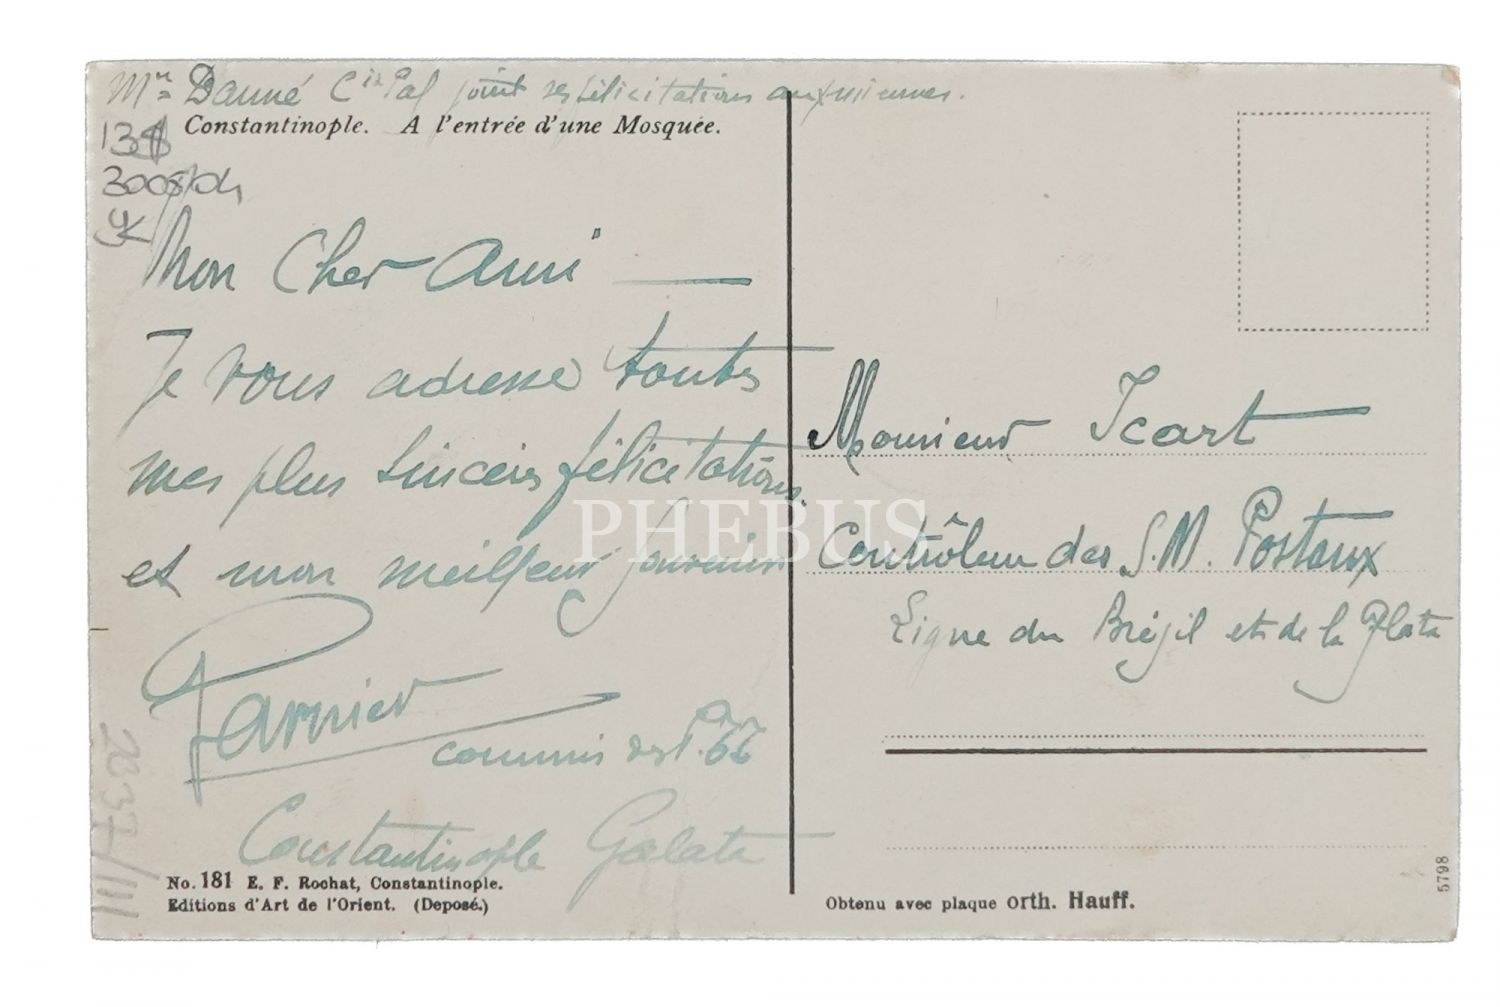 Mr Danné Cis Pal joint ses félicitations aux miennes.
Constantinople. A l'entrée d'une Mosquée.
138
3008/04
Mon Cher Ami —
Je vous adresse toutes
mes plus sincères félicitations.
et mon meilleur souvenir
Parnier
commis des P.
Constantinople Galata
No. 181 E. F. Rochat, Constantinople.
Editions d'Art de l'Orient. (Deposé.)
2337/111
PHEBUS
Monsieur Icart
Contrôleur des S.M. Postaux
Ligne du Brésil et de la Plata
Obtenu avec plaque orth. Hauff.
5798